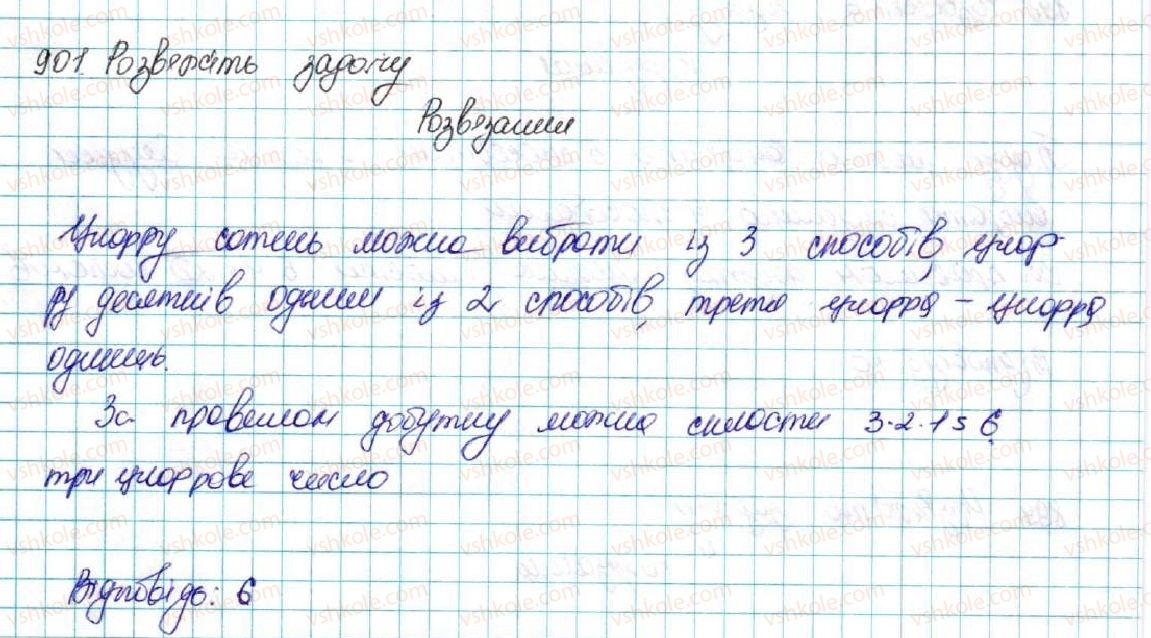 901. Розв'яжіть задачу
Розв'язання
Цифру сотень можна вибрати із 3 способів, циф-
ру десятків одним із 2 способів, третя цифра – цифра
одиниць.
За правилом добутку можна скласти 3·2·1 = 6
три цифрове число
Відповідь: 6